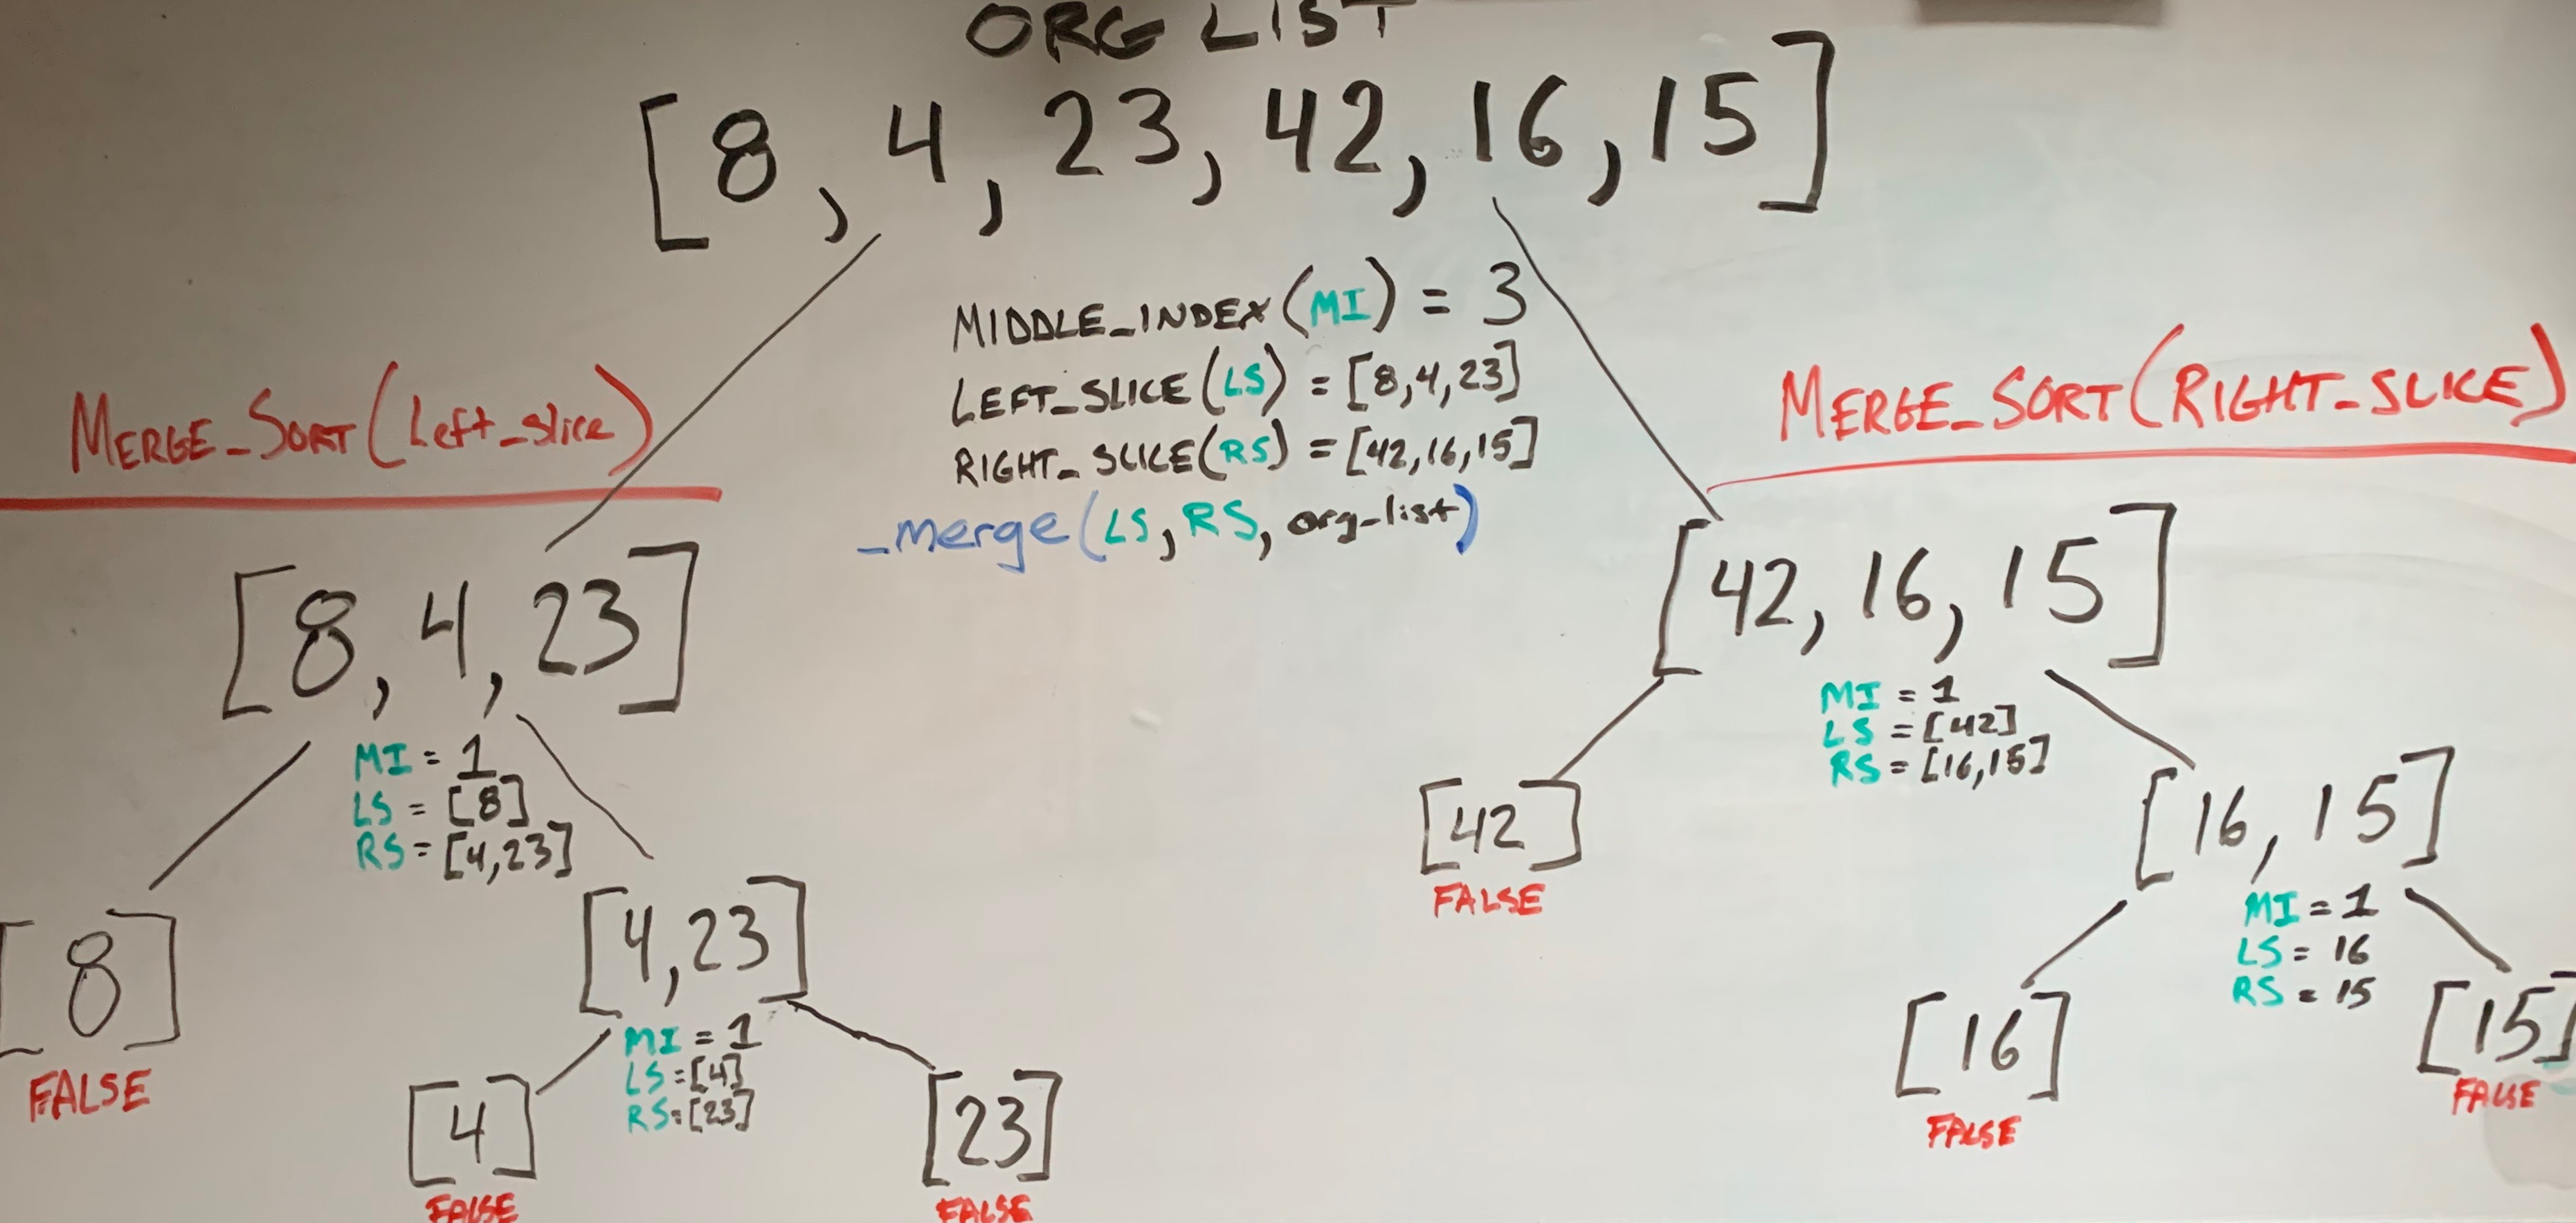 ORG LIST
[8, 4, 23, 42, 16, 15]
MIDDLE_INDEX(MI) = 3
LEFT_SLICE(LS) = [8,4,23]
RIGHT_SLICE(RS) = [42,16,15]
_merge(LS, RS, org_list)
MERGE_SORT(Left_slice)
MERGE_SORT(RIGHT_SLICE)
[8, 4, 23]
MI = 1
LS = [8]
RS = [4,23]
[42, 16, 15]
MI = 1
LS = [42]
RS = [16,15]
[8]
FALSE
[4,23]
MI = 1
LS = [4]
RS = [23]
[4]
FALSE
[23]
FALSE
[42]
FALSE
[16, 15]
MI = 1
LS = 16
RS = 15
[16]
FALSE
[15]
FALSE